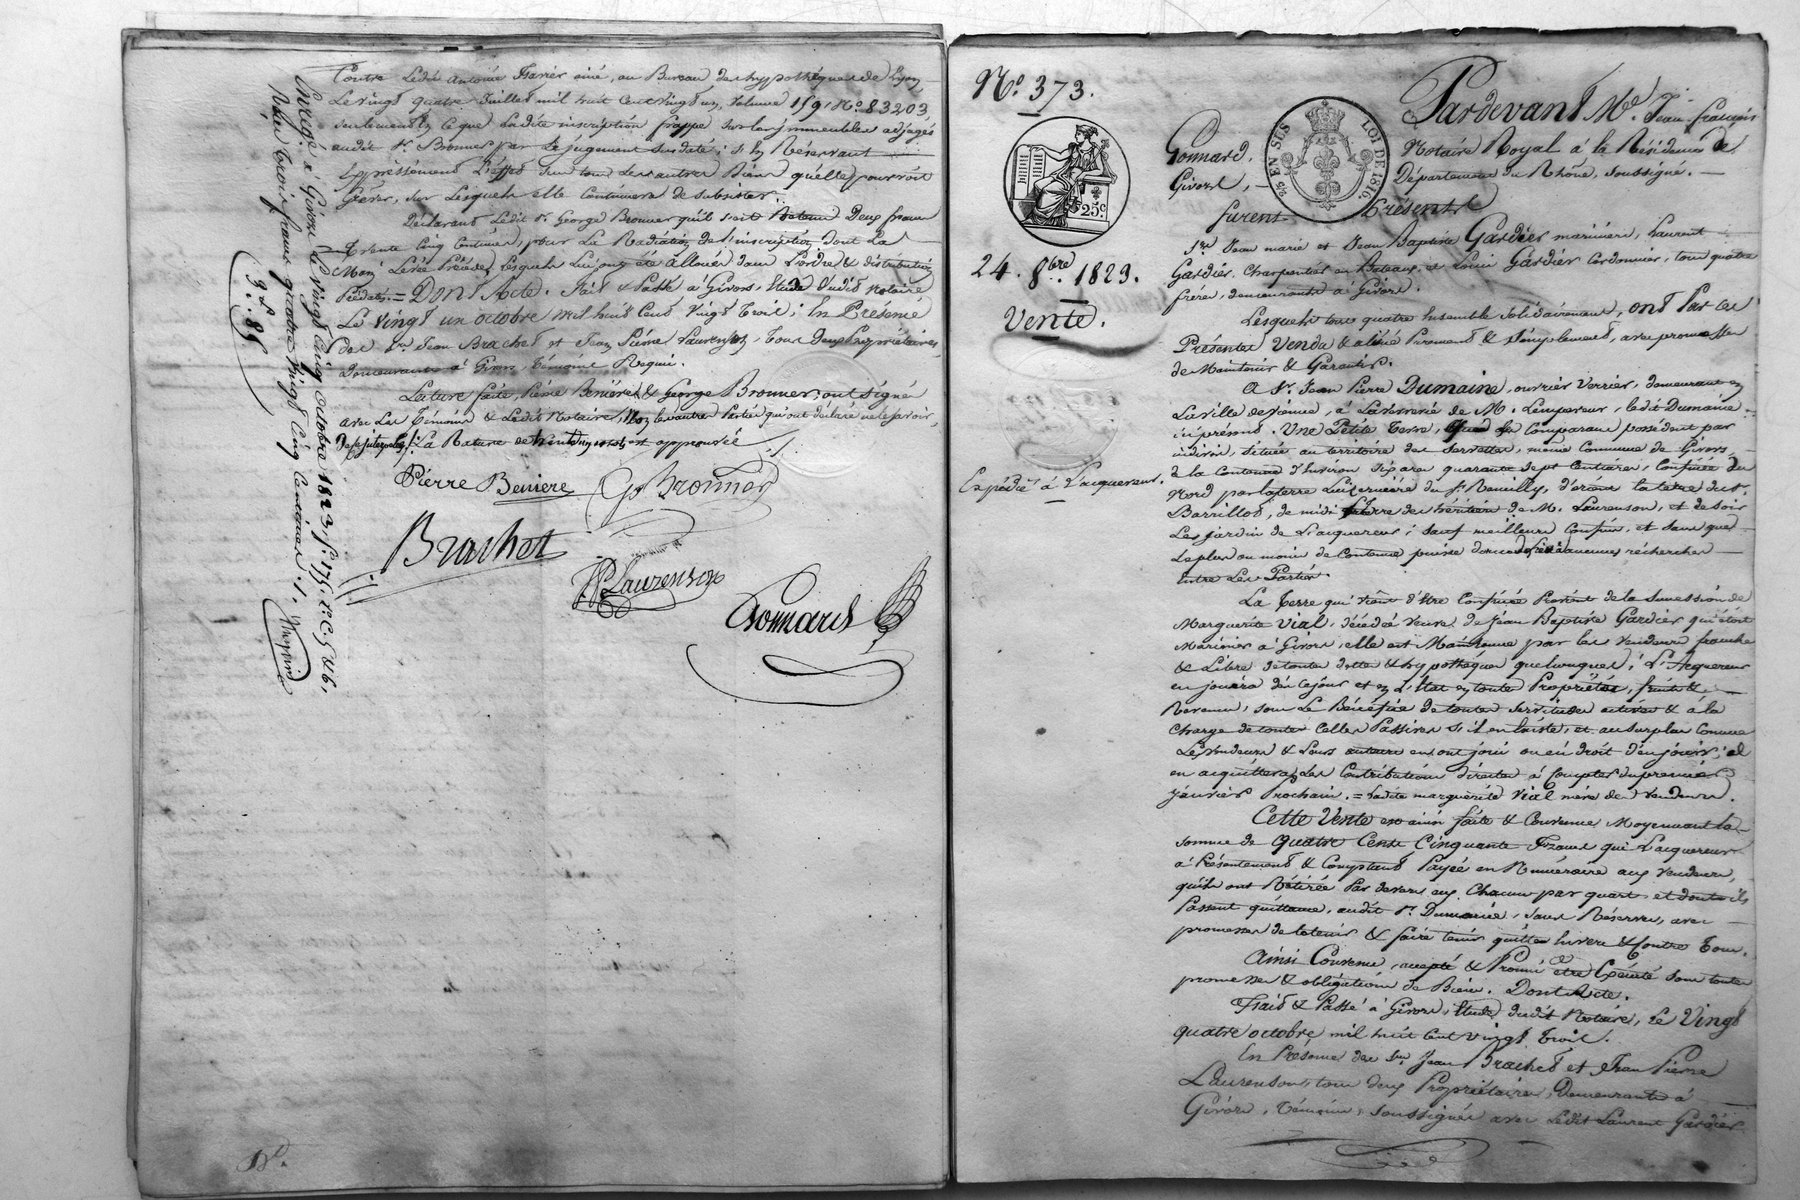 Contre Ledit Antoine Favier ainé, au Bureau des hypothèques de Lyon,
Le vingt quatre Juillet mil huit Cent vingt un, Volume 159, No. 83203,
seulement en ce que Ladite inscription frappe sur les immeubles adjugés
audit Sr. Bronner par Le jugement susdaté ; s'en Réservant
Expressément L'effet sur tous les autres Biens qu'elle pourroit
Gréver, sur Lesquels elle Continuera de subsister.
Déclarant Ledit Sr. George Bronner qu'il Deux francs
Trente Cinq Centimes, pour La Radiation de l'inscription dont La
Main Levée Précède, Lesquels lui ont été alloués dans L'ordre & distribution
Prédatés. = Dont Acte. Fait & Passé à Givors, Etude Dudit Notaire
Le vingt un octobre mil huit Cent Vingt Trois ; En Présence
des Srs. Jean Brachet et Jean Pierre Laurenson, Tous Deux Propriétaires,
demeurants à Givors, Témoins Requis.
Lecture faite, Pierre Benière & George Bronner, ont signé
avec Les Témoins & Ledit Notaire, Non les autres Parties qui ont déclaré ne le savoir,
De ce interpelés ./. La Rature de mots est approuvée ./.
Pierre Beniere G Bronner
Brachet
JP Laurenson
Gonnard
Enregé. à Givors Le Vingt Cinq octobre 1823, fo. 175, Ro. C. 5 & 6,
Reçu Trois francs quatre Vingt Cinq Centimes ./.
3f. 85
No. 373.
25c.
24. 8bre. 1823.
Vente.
Expédié à L'acquereur.
EN SUS
LOI DE 1816.
Pardevant Me. Jean François
Gonnard, Notaire Royal à la Résidence de
Givors, Département du Rhône, soussigné.
furent Présents
Srs. Jean Marie et Jean Baptiste Gardier mariniers, Laurent
Gardier, Charpentier en Bateaux, et Louis Gardier Cordonnier, tous quatre
frères, demeurants à Givors.
Lesquels tous quatre Ensemble Solidairement, ont Par ces
Présentes Vendu & aliéné Purement & Simplement, avec promesse
de Maintenir & Garantir.
A Sr. Jean Pierre Dumaine, ouvrier Verrier, demeurant en
La ville de Vienne, à La Verrerie de M. Lempereur, ledit Dumaine
ici présent. Une Petite Terre, que les Comparans possédent par
indivis, située au territoire des Servettes, même Commune de Givors,
de la Contenue d'Environ Six ares quarante sept Centiares, Confinée du
Nord par la terre Luzernière du Sr. Neuilly, d'orient la terre du Sr.
Barrillot, de midi terre des héritiers de M. Laurenson, et de soir
Les jardin de L'acquereur ; sauf meilleurs Confins, et sans que
Le plus ou moins de Contenue puisse donner Lieu à aucunes recherches
Entre Les Parties.
La Terre qui vient d'être Confinée Provient de la Succession de
Marguerite Vial, décédée Veuve de Jean Baptiste Gardier qui étoit
Marinier à Givors, elle est Maintenue par les Vendeurs franche
& Libre de toutes dettes & hypothèques quelconques ; L'Acquereur
en jouira dès ce jour et en L'Etat en toutes Propriétés, fruits &
Revenus ; sous Le Bénéfice de toutes servitudes actives & à la
Charge de toutes Celles Passives s'il en Existe, et au Surplus Comme
Les Vendeurs & Leurs auteurs en ont joui ou eu droit d'en jouir ; et
en acquittera Les Contributions directes à Compter du premier
Janvier Prochain. = Ladite marguerite Vial mère des Vendeurs.
Cette Vente est ainsi faite & Convenue, Moyennant la
somme de Quatre Cents Cinquante Francs que L'acquereur
a Présentement & Comptant Payée en Numéraire aux Vendeurs,
qu'ils ont Retirée Par devers eux Chacun par quart et dont ils
Passent quittance, audit Sr. Dumaine, sans Réserves, avec
promesses de le tenir & faire tenir quitte Envers & Contre Tous.
Ainsi Convenu, accepté & Promis être Exécuté sous toutes
promesses & obligations de Biens. Dont Acte.
Fait & Passé à Givors, Etude dudit Notaire, Le Vingt
quatre octobre mil huit Cent vingt Trois.
En Présence des Srs. Jean Brachet et Jean Pierre
Laurenson, tous deux Propriétaires, Demeurants à
Givors, Témoins, soussignés avec Ledit Laurent Gardier